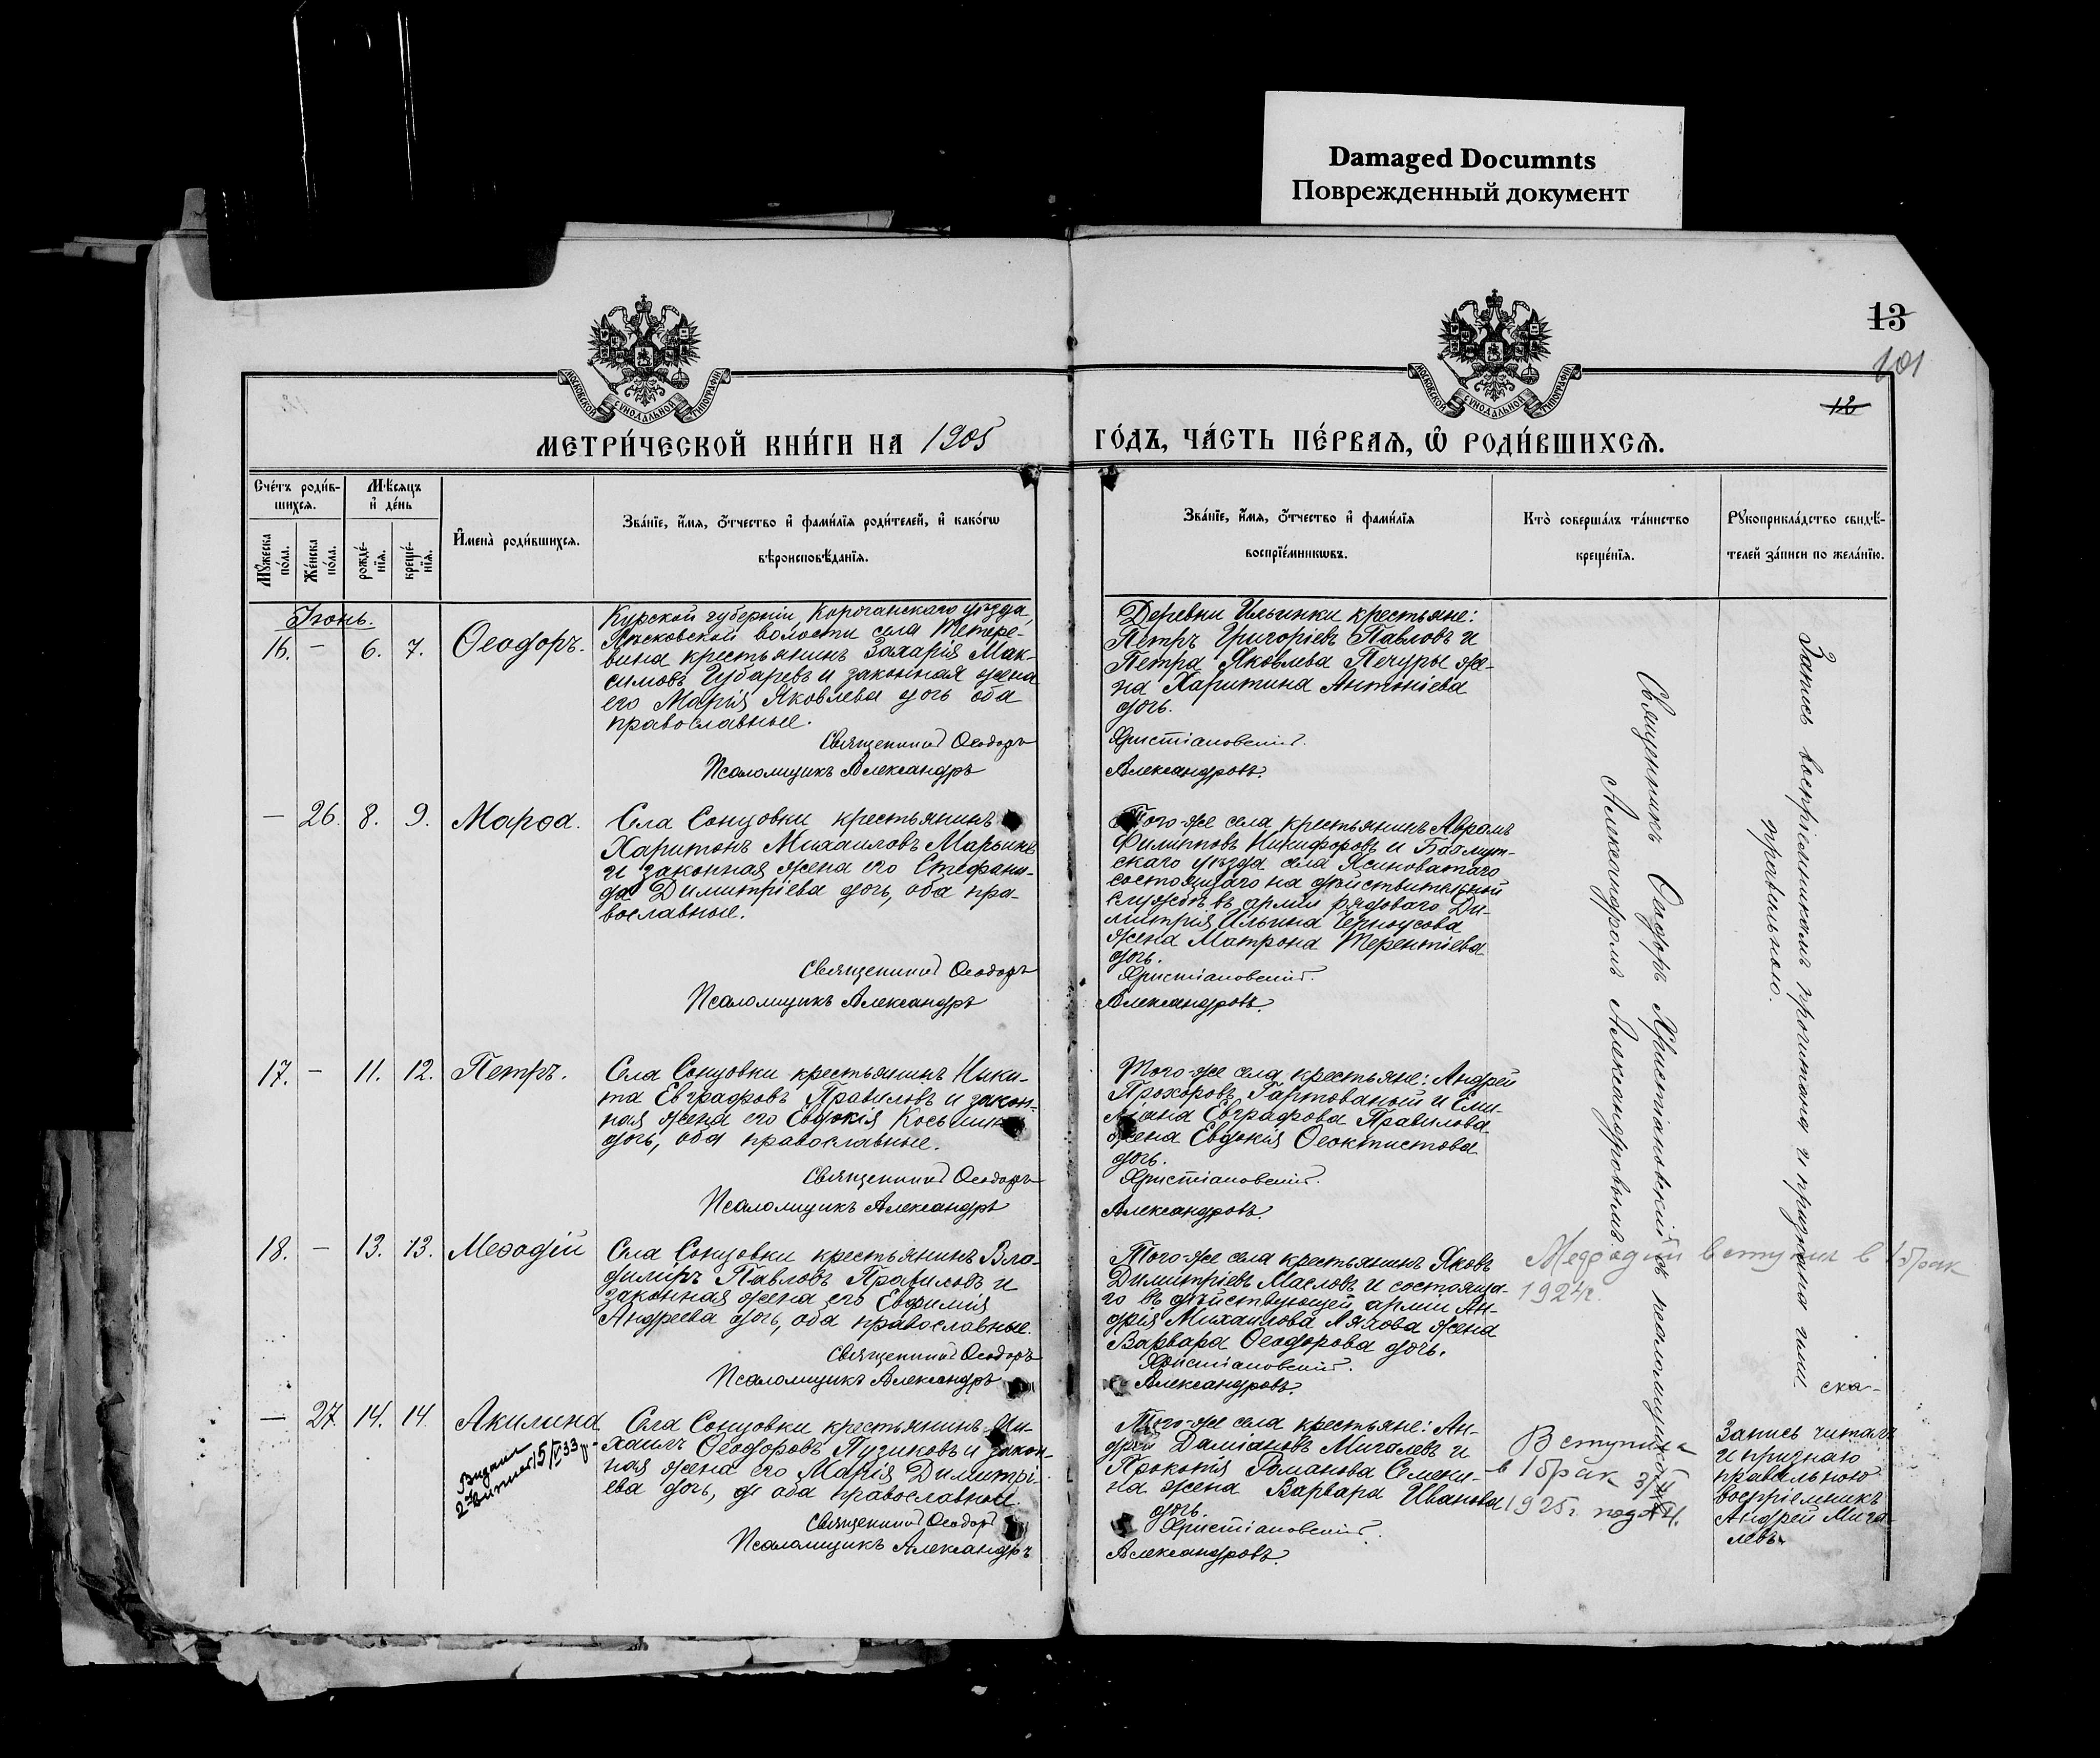 Damaged Documnts
Поврежденный документ
13
101
12
МОСКОВСКОЙ СѴНОДАЛЬНОЙ ТИПОГРАФІИ
МОСКОВСКОЙ СѴНОДАЛЬНОЙ ТИПОГРАФІИ
МЕТРИ́ЧЕСКОЙ КНИ́ГИ НА 1905
ГО́ДЪ, ЧА́СТЬ ПЕ́РВАЯ, Ѽ РОДИ́ВШИХСѦ.
Сче́тъ роди́в-
шихсѧ.
Мѣ́сяцъ
и҆ де́нь
Мꙋ́жеска
по́ла.
Же́нска
по́ла.
рожде́-
нїѧ.
креще́-
нїѧ.
И҆мена̀ роди́вшихсѧ.
Зва́нїе, и҆́мѧ, ѻ҆́тчество и҆ фами́лїѧ роди́телей, и҆ како́гѡ
вѣроисповѣ́данїѧ.
Зва́нїе, и҆́мѧ, ѻ҆́тчество и҆ фами́лїѧ
воспрїе́мникѡвъ.
Кто̀ соверша́лъ та́инство
креще́нїѧ.
Рꙋкоприкла́дство свидѣ́-
телей за́писи по жела́нїю.
Іюнь.
16. – 6. 7. Ѳеодоръ.
Курской губерніи, Корочанскаго уѣзда
волости села Тетере-
вина крестьянинъ Захарія Мак-
симовъ Чубаревъ и законная жена
его Марія Яковлева дочь оба
православные.
Священникъ Ѳеодоръ
Псаломщикъ Александръ
Деревни Ильинки крестьяне:
Петръ Григоріевъ Павловъ и
Петра Яковлева Печуры же-
на Харитина Антоніева
дочь.
Христіановскій.
Александровъ.
– 26. 8. 9. Марѳа.
Села Сонцовки крестьянинъ
Харитонъ Михаиловъ Марьинъ
и законная жена его Стефани-
да Димитріева дочь, оба пра-
вославные.
Священникъ Ѳеодоръ
Псаломщикъ Александръ
Того-же села крестьянинъ Аврамъ
Филипповъ Никифоровъ и Бахмут-
скаго уѣзда села Ясиноватаго
состоящаго на дѣйствительной
службѣ въ арміи рядоваго Ди-
митрія Ильина Черноусова
жена Матрона Терентіева
дочь.
Христіановскій.
Александровъ.
17. – 11. 12. Петръ.
Села Сонцовки крестьянинъ Ники-
та Евграфовъ Правиловъ и закон-
ная жена его Евдокія Косьмина
дочь, оба православные.
Священникъ Ѳеодоръ
Псаломщикъ Александръ
Того-же села крестьяне: Андрей
Прохоровъ Гартованый и Еми-
ліана Евграфова Правилова
жена Евдокія Ѳеоктистова
дочь.
Христіановскій.
Александровъ.
18. – 13. 13. Меѳодій
Села Сонцовки крестьянинъ Вла-
димиръ Павловъ Правиловъ и
законная жена его Евфимія
Андреева дочь, оба православные.
Священникъ Ѳеодоръ
Псаломщикъ Александръ
Того-же села крестьянинъ Яковъ
Димитріевъ Масловъ и состояща-
го въ дѣйствующей арміи Ан-
дрія Михаилова Ляхова жена
Варвара Ѳеодорова дочь.
Христіановскій.
Александровъ.
Мефодий вступил в 1 брак
1924г.
– 27. 14. 14. Акилина
15/V 33
Села Сонцовки крестьянинъ Ми-
хаилъ Ѳеодоровъ Пузиковъ и закон-
ная жена его Марія Димитрі-
ева дочь, оба православные.
Священникъ Ѳеодоръ
Псаломщикъ Александръ
Того-же села крестьяне: Ан-
дрей Даміановъ Мигалевъ и
Прокопія Романова Семени-
на жена Варвара Иванова
дочь.
Христіановскій.
Александровъ.
Вступила
в 1 брак
1925г.
Священникъ Ѳеодоръ Христіановскій съ псаломщикомъ
Александромъ Александровымъ.
Запись воспріемникамъ прочитана и признана ими
правильною.
Запись читалъ
и признаю
правильною
воспріемникъ
Андрей Мига-
левъ.